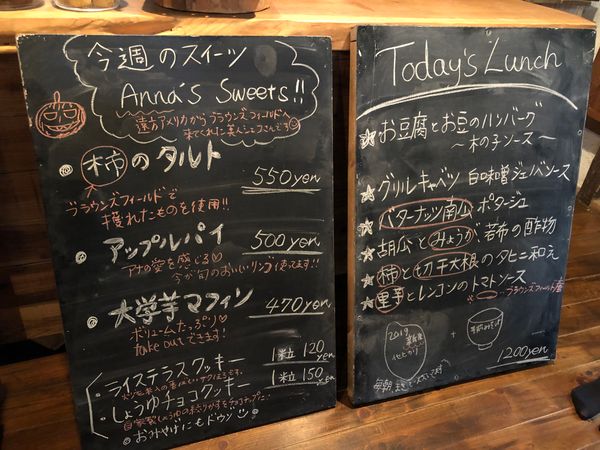 今週のスイーツ
Anna's Sweets!!
遠方アメリカからラウンズフィールドへ
来てくれた美人シェフさんです♡
柿のタルト
550yen
ブラウンズフィールドで
穫れたものを使用!!
アップルパイ
500yen
アナの愛を感じる♡
今が旬のおいしいリンゴ使ってます!!
大学芋マフィン
470yen
ボリュームたっぷり♡
take outできます!
ライステラスクッキー 1粒 120yen
しょうゆチョコクッキー 1粒 150yen
おみやげにもドウゾ
Today's Lunch
★お豆腐とお豆のハンバーグ
～木の子ソース～
★グリルキャベツ 白味噌ジェノバソース
★バターナッツ南瓜 ポタージュ
★胡瓜とみょうが、若布の酢物
★柿と切干大根のタヒニ和え
★里芋とレンコンのトマトソース
ブラウンズフィールド産
2019
新米
+
1200yen